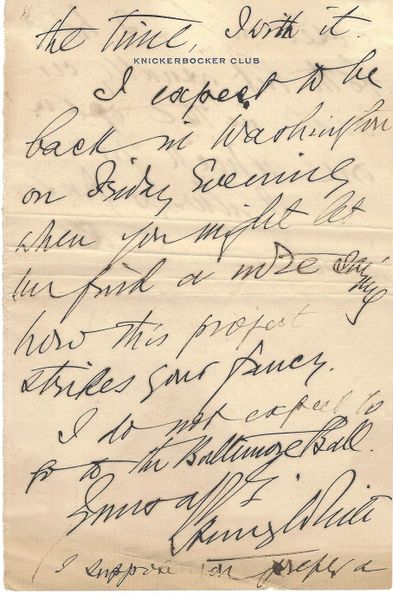 the time, I with it.
KNICKERBOCKER CLUB
I expect to be
back in Washington
on Friday Evening
when you might let
me find a note saying
how this project
strikes your fancy.
I do not expect to
go to the Baltimore Ball.
Yours aff'
Henry White
I suppose you prefer a